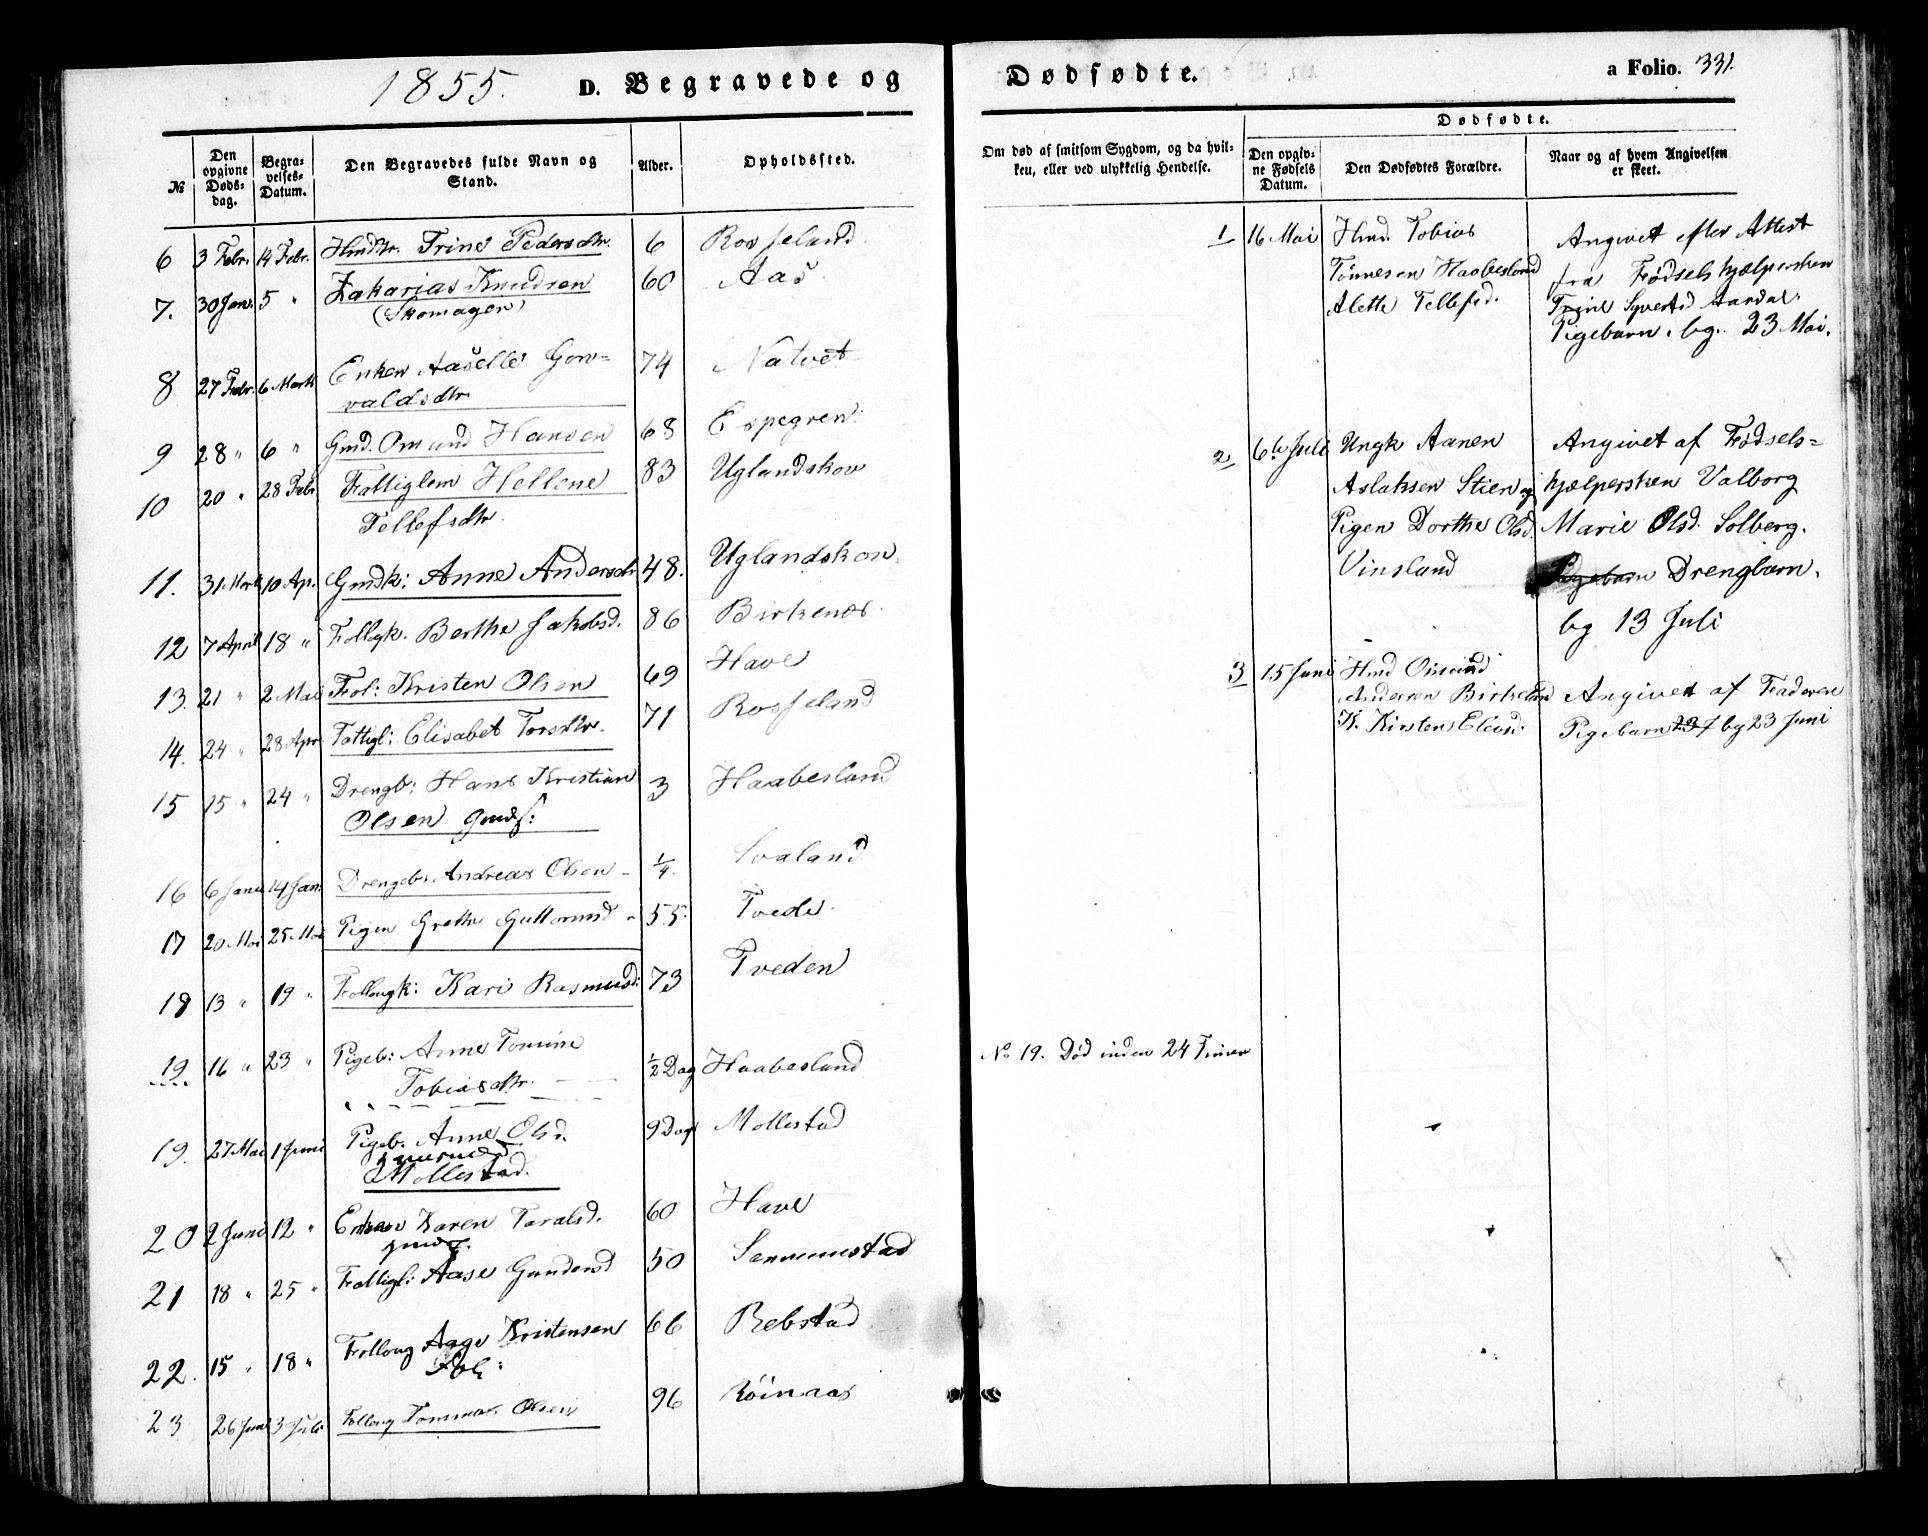 1855. D. Begravede og Dødfødte. a Folio. 331.
Dødfødte.
№
Den opgivne Døds-dag.
Begra-velses-Datum.
Den Begravedes fulde Navn og Stand.
Alder.
Opholdssted.
Om død af smitsom Sygdom, og da hvil-ken, eller ved ulykkelig Hendelse.
Den opgiv-ne Fødsels Datum.
Den Dødfødtes Forældre.
Naar og af hvem Angivelsen er skeet.
6 3 Febr. 14 Febr. Hmdtr. Trine Pedersdtr. 6 Rosseland
7. 30 Jan. 5 " Zakarias Knudsen 60 Aas
(Skomager)
8 27 Febr. 6 Marts Enken Aaselle Gon=
valdsdtr. 74 Natvet
9 28 " 6 " Gmd. Omund Hansen 68 Espegren.
10 20 " 28 Febr Fattiglem Hellene 83 Uglandskov
Tellefsdtr.
11. 31 Marts 10 Ap. Gmdk: Anne Andersdtr 48. Uglandskov.
12 7 April 18 " Follogk. Berthe Jakobsd. 86 Birkenes.
13. 21 " 2 Mai Fol: Kristen Olsen 69 Have
14. 24 " 28 Apr Fattigl: Elisabet Torsdtr. 71 Rosseland
15 15 " 24 " Drengb: Hans Kristian 3 Haabesland
Olsen Gmds:
16 6 Janu 14 Jan. Drengeb. Andreas Olsen - 1/4. Svaland
17 20 Mai 25 Mai Pigen Grethe Guttormsd - 55. Tvede.
18 13 " 19 " Follougk: Kari Rasmusd: 73 Tveden
19 16 " 23 " Pigeb: Anne Tomine 1/2 Dag Haabesland
Tobiasdtr.
No 19. Død inden 24 Timer
19. 27 Mai 1 Juni Pigeb. Anne Olsd. 9 Dage Mollestad
Mollestad.
20 2 Juni 12 " Enken Karen Taralsd. 60 Have
21 18 " 25 " Fattigl: Aase Gundersd 50 Senumstad
22. 15 " 18 " Follong Aage Kristensen 66 Rebstad
Fol:
23 26 Juni 3 Juli Follong Tommas Olsen 96 Röinaas
1 16 Mai Hmd. Tobias
Tönnesen Haabesland
Alette Tellefsd.
Angivet efter Attest
fra Fødselshjælpersken
Trine Syvertsd Aardal.
Pigebarn. bg. 23 Mai.
2 6te Juli Ungk Aanen
Aslaksen Stien og
Pigen Dorthe Olsd.
Vinsland
Angivet af Fødsels=
hjælpersken Valborg
Marie Olsd. Solberg.
Pigebarn Drengbarn.
bg 13 Juli
3 15 Juni Hmd Omund
Andersen Birkeland
K. Kirsten Elevsd.
Angivet af Faderen
Pigebarn 23 f bg 23 Juni